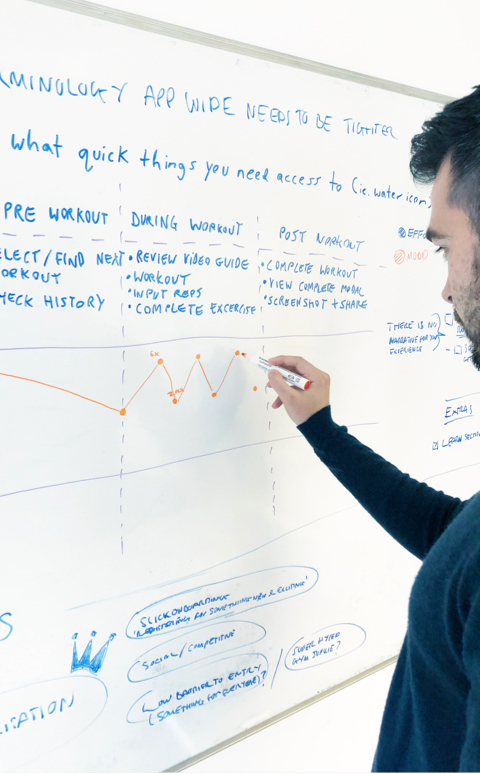 RMINOLOGY APP WIDE NEEDS TO BE TIGHTER
what quick things you need access to (ie. water icon)
PRE WORKOUT
ELECT/FIND NEXT
ORKOUT
HECK HISTORY
DURING WORKOUT
• REVIEW VIDEO GUIDE
• WORKOUT
• INPUT REPS
• COMPLETE EXCERCISE
POST WORKOUT
• COMPLETE WORKOUT
• VIEW COMPLETE MODAL
• SCREENSHOT + SHARE
EFFO
MOOD
THERE IS NO
NARRATIVE FOR
EXPERIENCE
EXTRAS
LEARN SECTI
S
ITATION
SLICK ONBOARDING
SOMETHING NEW & EXCITING'
SOCIAL / COMPETITIVE
LOW BARRIER TO ENTRY
(SOMETHING FOR EVERYONE)?
SUPER HYPED
GYM JUNKIE?